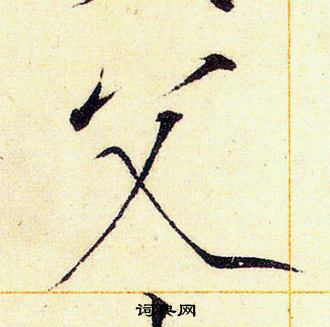 父
词典网